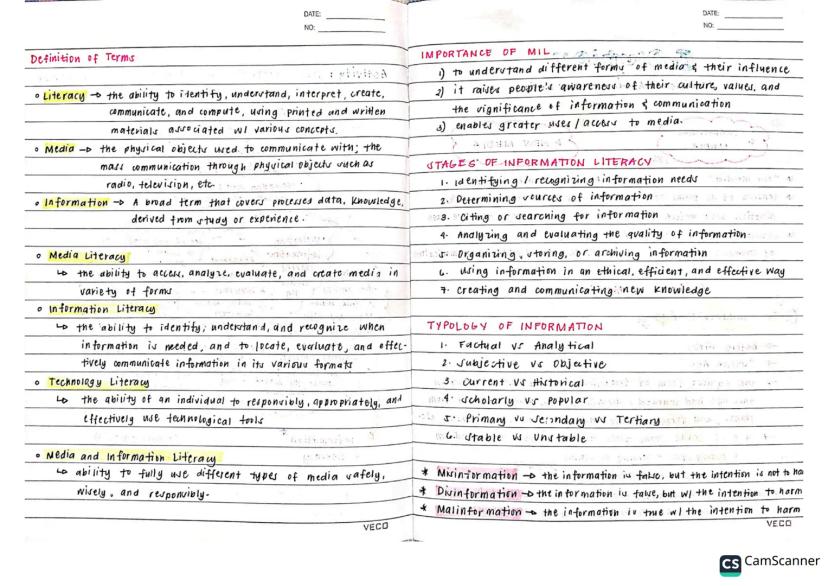 DATE:
NO:
Definition of Terms
Literacy → the ability to identify, understand, interpret, create,
communicate, and compute, using printed and written
materials associated w/ various concepts.
Media → the physical objects used to communicate with; the
mass communication through physical objects such as
radio, television, etc.
Information → A broad term that covers processed data, knowledge,
derived from study or experience.
Media Literacy
↳ the ability to access, analyze, evaluate, and create media in
variety of forms
Information Literacy
↳ the ability to identify, understand, and recognize when
information is needed, and to locate, evaluate, and effec-
tively communicate information in its various formats
Technology Literacy
↳ the ability of an individual to responsibly, appropriately, and
effectively use technological tools
Media and Information Literacy
↳ ability to fully use different types of media safely,
wisely, and responsibly.
VECO
DATE:
NO:
IMPORTANCE OF MIL
1) to understand different forms of media & their influence
2) it raises people's awareness of their culture, values, and
the significance of information & communication
3) enables greater uses / access to media.
STAGES OF INFORMATION LITERACY
1. Identifying / recognizing information needs
2. Determining sources of information
3. Citing or searching for information
4. Analyzing and evaluating the quality of information
5. Organizing, storing, or archiving information
6. Using information in an ethical, efficient, and effective way
7. Creating and communicating new knowledge
TYPOLOGY OF INFORMATION
1. Factual vs Analytical
2. Subjective vs Objective
3. Current vs Historical
4. Scholarly vs Popular
5. Primary vs Secondary vs Tertiary
6. Stable vs Unstable
* Misinformation → the information is false, but the intention is not to ha
* Disinformation → the information is false, but w/ the intention to harm
* Malinformation → the information is true w/ the intention to harm
VECO
CS CamScanner